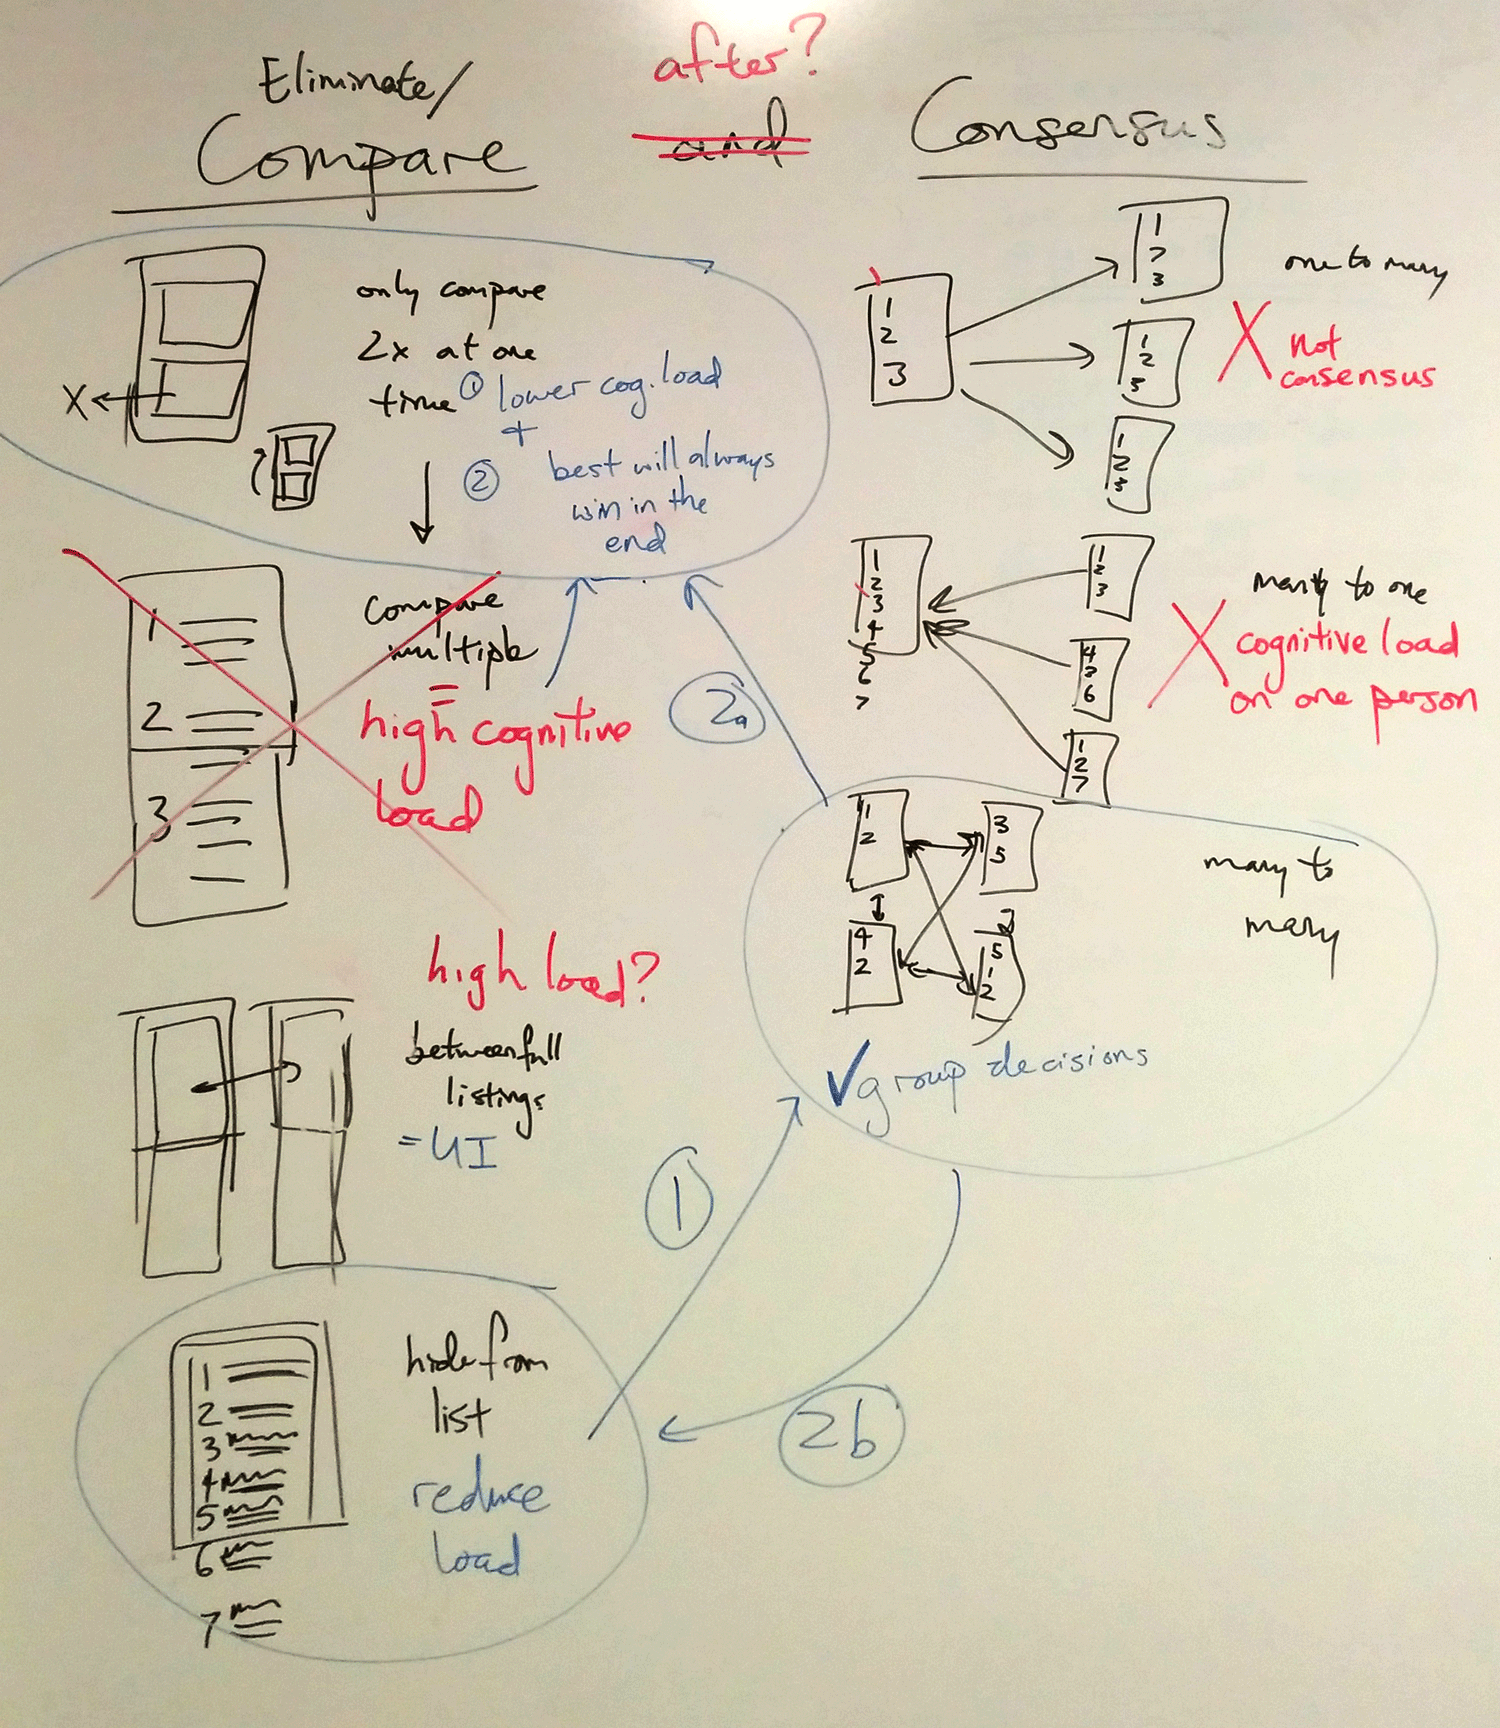 Eliminate/
Compare
after?
and
Consensus
only compare
2x at one
time
① lower cog. load
+
② best will always
win in the
end
X
compare
multiple
=
high cognitive
load
1
2
3
high load?
between full
listings
= UI
hide from
list
reduce
load
1
2
3
4
5
6
7
1
2
3
1
2
3
1
2
3
one to many
X not
consensus
1
2
3
4
5
6
7
1
2
3
1
2
7
many to one
X cognitive load
on one person
1
2
3
5
4
2
5
1
2
many to
many
✓ group decisions
①
2a
2b